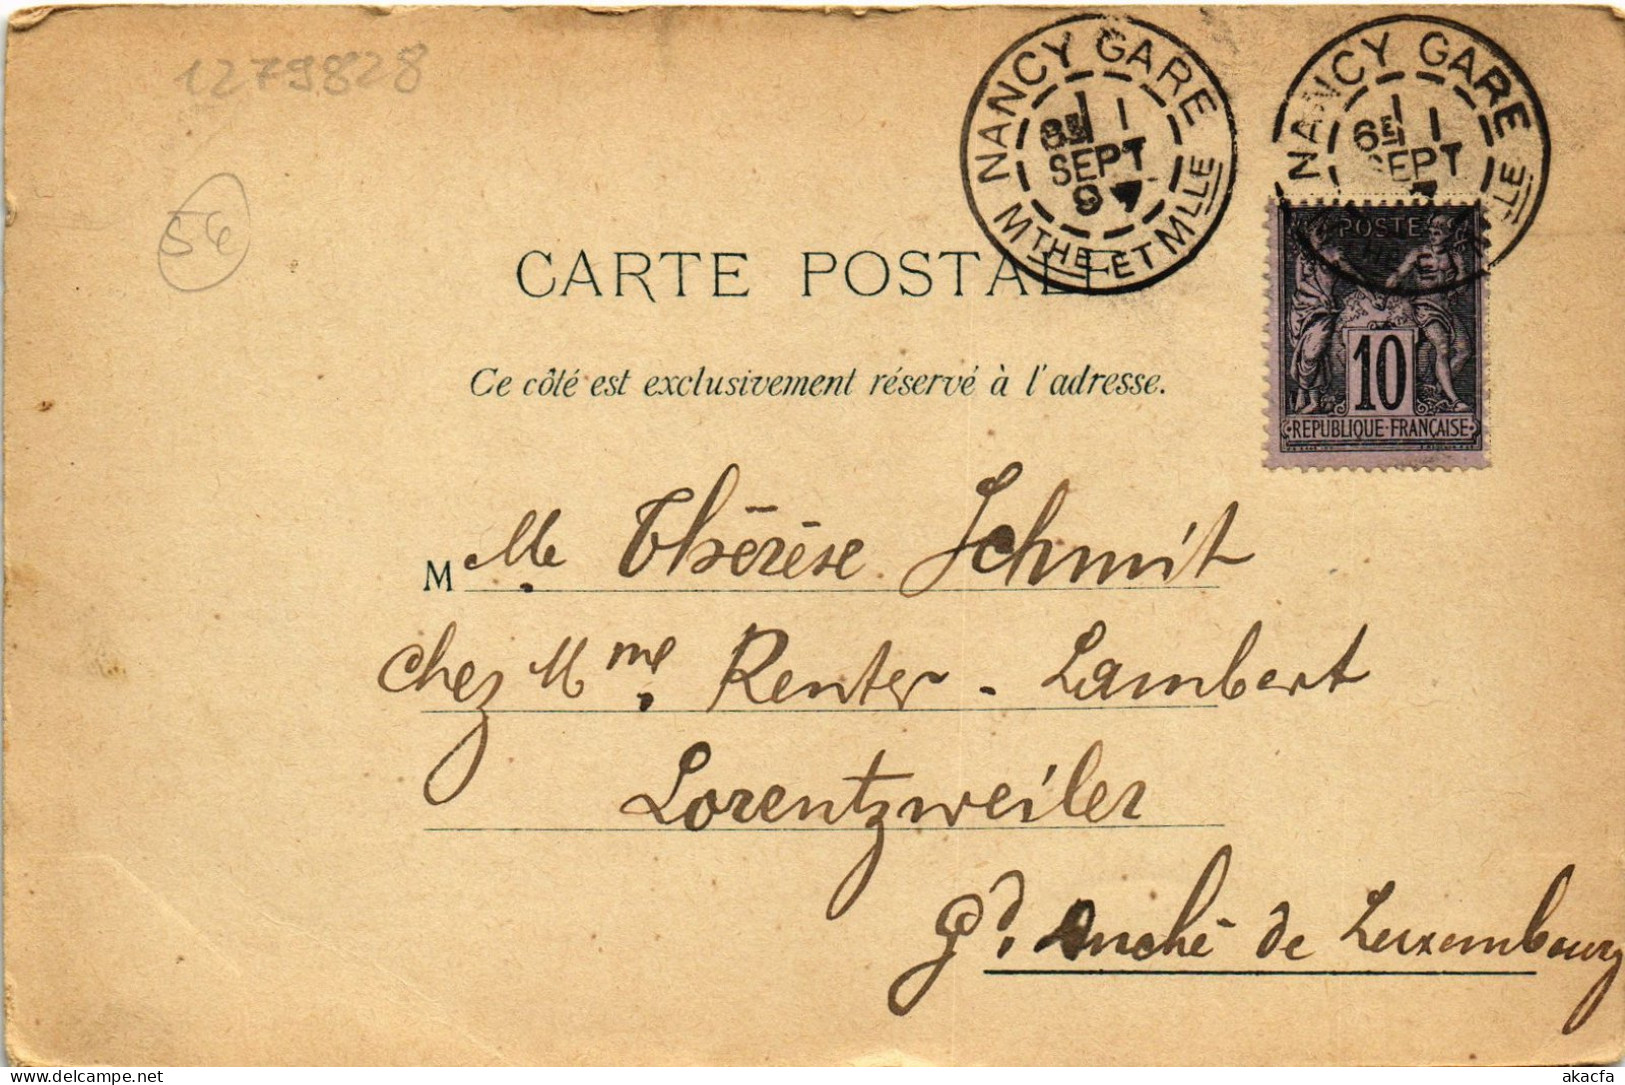 1279828
54
NANCY GARE
1 1
SEPT
97
MTHE ET MLLE
NANCY GARE
6E 1 1
SEPT
7
LLE
POSTE
10
REPUBLIQUE FRANÇAISE
CARTE POSTALE
Ce côté est exclusivement réservé à l'adresse.
M Mlle Thérèse Schmit
chez Mme Renter-Lambert
Lorentzweiler
Gd. Duché de Luxembourg
akacfa